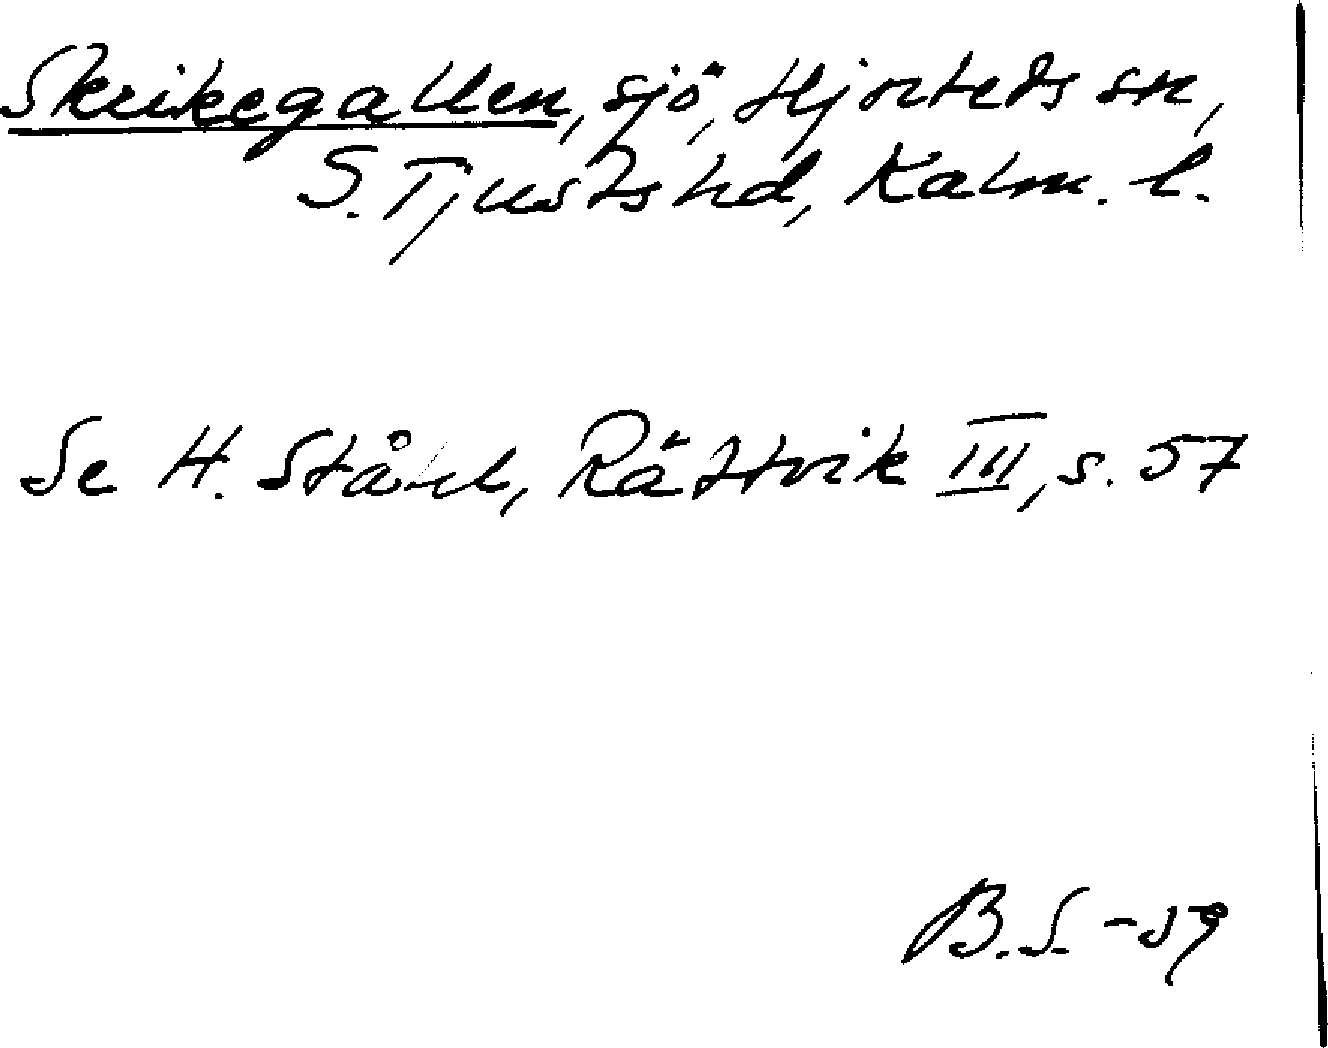 Skrikegallen, sjö, Hjorteds sn,
S. Tjusts hd, Kalm. l.
Se H. Ståhl, Rättvik III, s. 57
B.S. -59